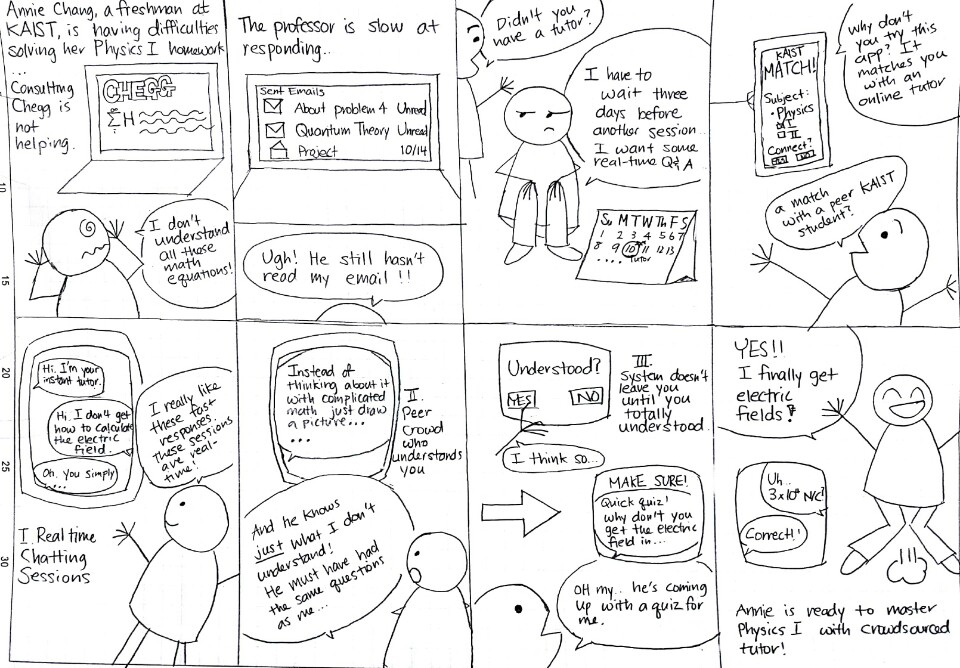 Annie Chang, a freshman at
KAIST, is having difficulties
solving her Physics I homework
...
Consulting
Chegg is
not
helping.
CHEGG
I don't
understand
all these
math
equations!
The professor is slow at
responding..
Sent Emails
About problem 4 Unread
Quantum Theory Unread
Project 10/14
Ugh! He still hasn't
read my email !!
Didn't you
have a tutor?
I have to
wait three
days before
another session...
I want some
real-time Q&A
Su M T W Th F S
1 2 3 4 5 6 7
8 9 10 11 12 13
.... Tutor
Why don't
you try this
app? It
matches you
with an
online tutor
KAIST
MATCH!
Subject:
• Physics
I
II
Connect?
a match
with a peer KAIST
student?
Hi. I'm your
instant tutor.
Hi. I don't get
how to calculate
the electric
field.
Oh. You simply
....
I really like
these fast
responses.
These sessions
are real-
time!
I. Real time
Chatting
Sessions
Instead of
thinking about it
with complicated
math just draw
a picture...
...
II.
Peer
crowd
who
understands
you
And he knows
just what I don't
understand!
He must have had
the same questions
as me...
Understood?
YES NO
III.
System doesn't
leave you
until you
totally
understood.
I think so...
MAKE SURE!
Quick quiz!
why don't you
get the electric
field in...
OH my.. he's coming
up with a quiz for
me.
YES!!
I finally get
electric
fields!
Uh..
3x10⁸ N/C!
Correct!!
Annie is ready to master
Physics I with crowdsourced
tutor!
10
15
20
25
30